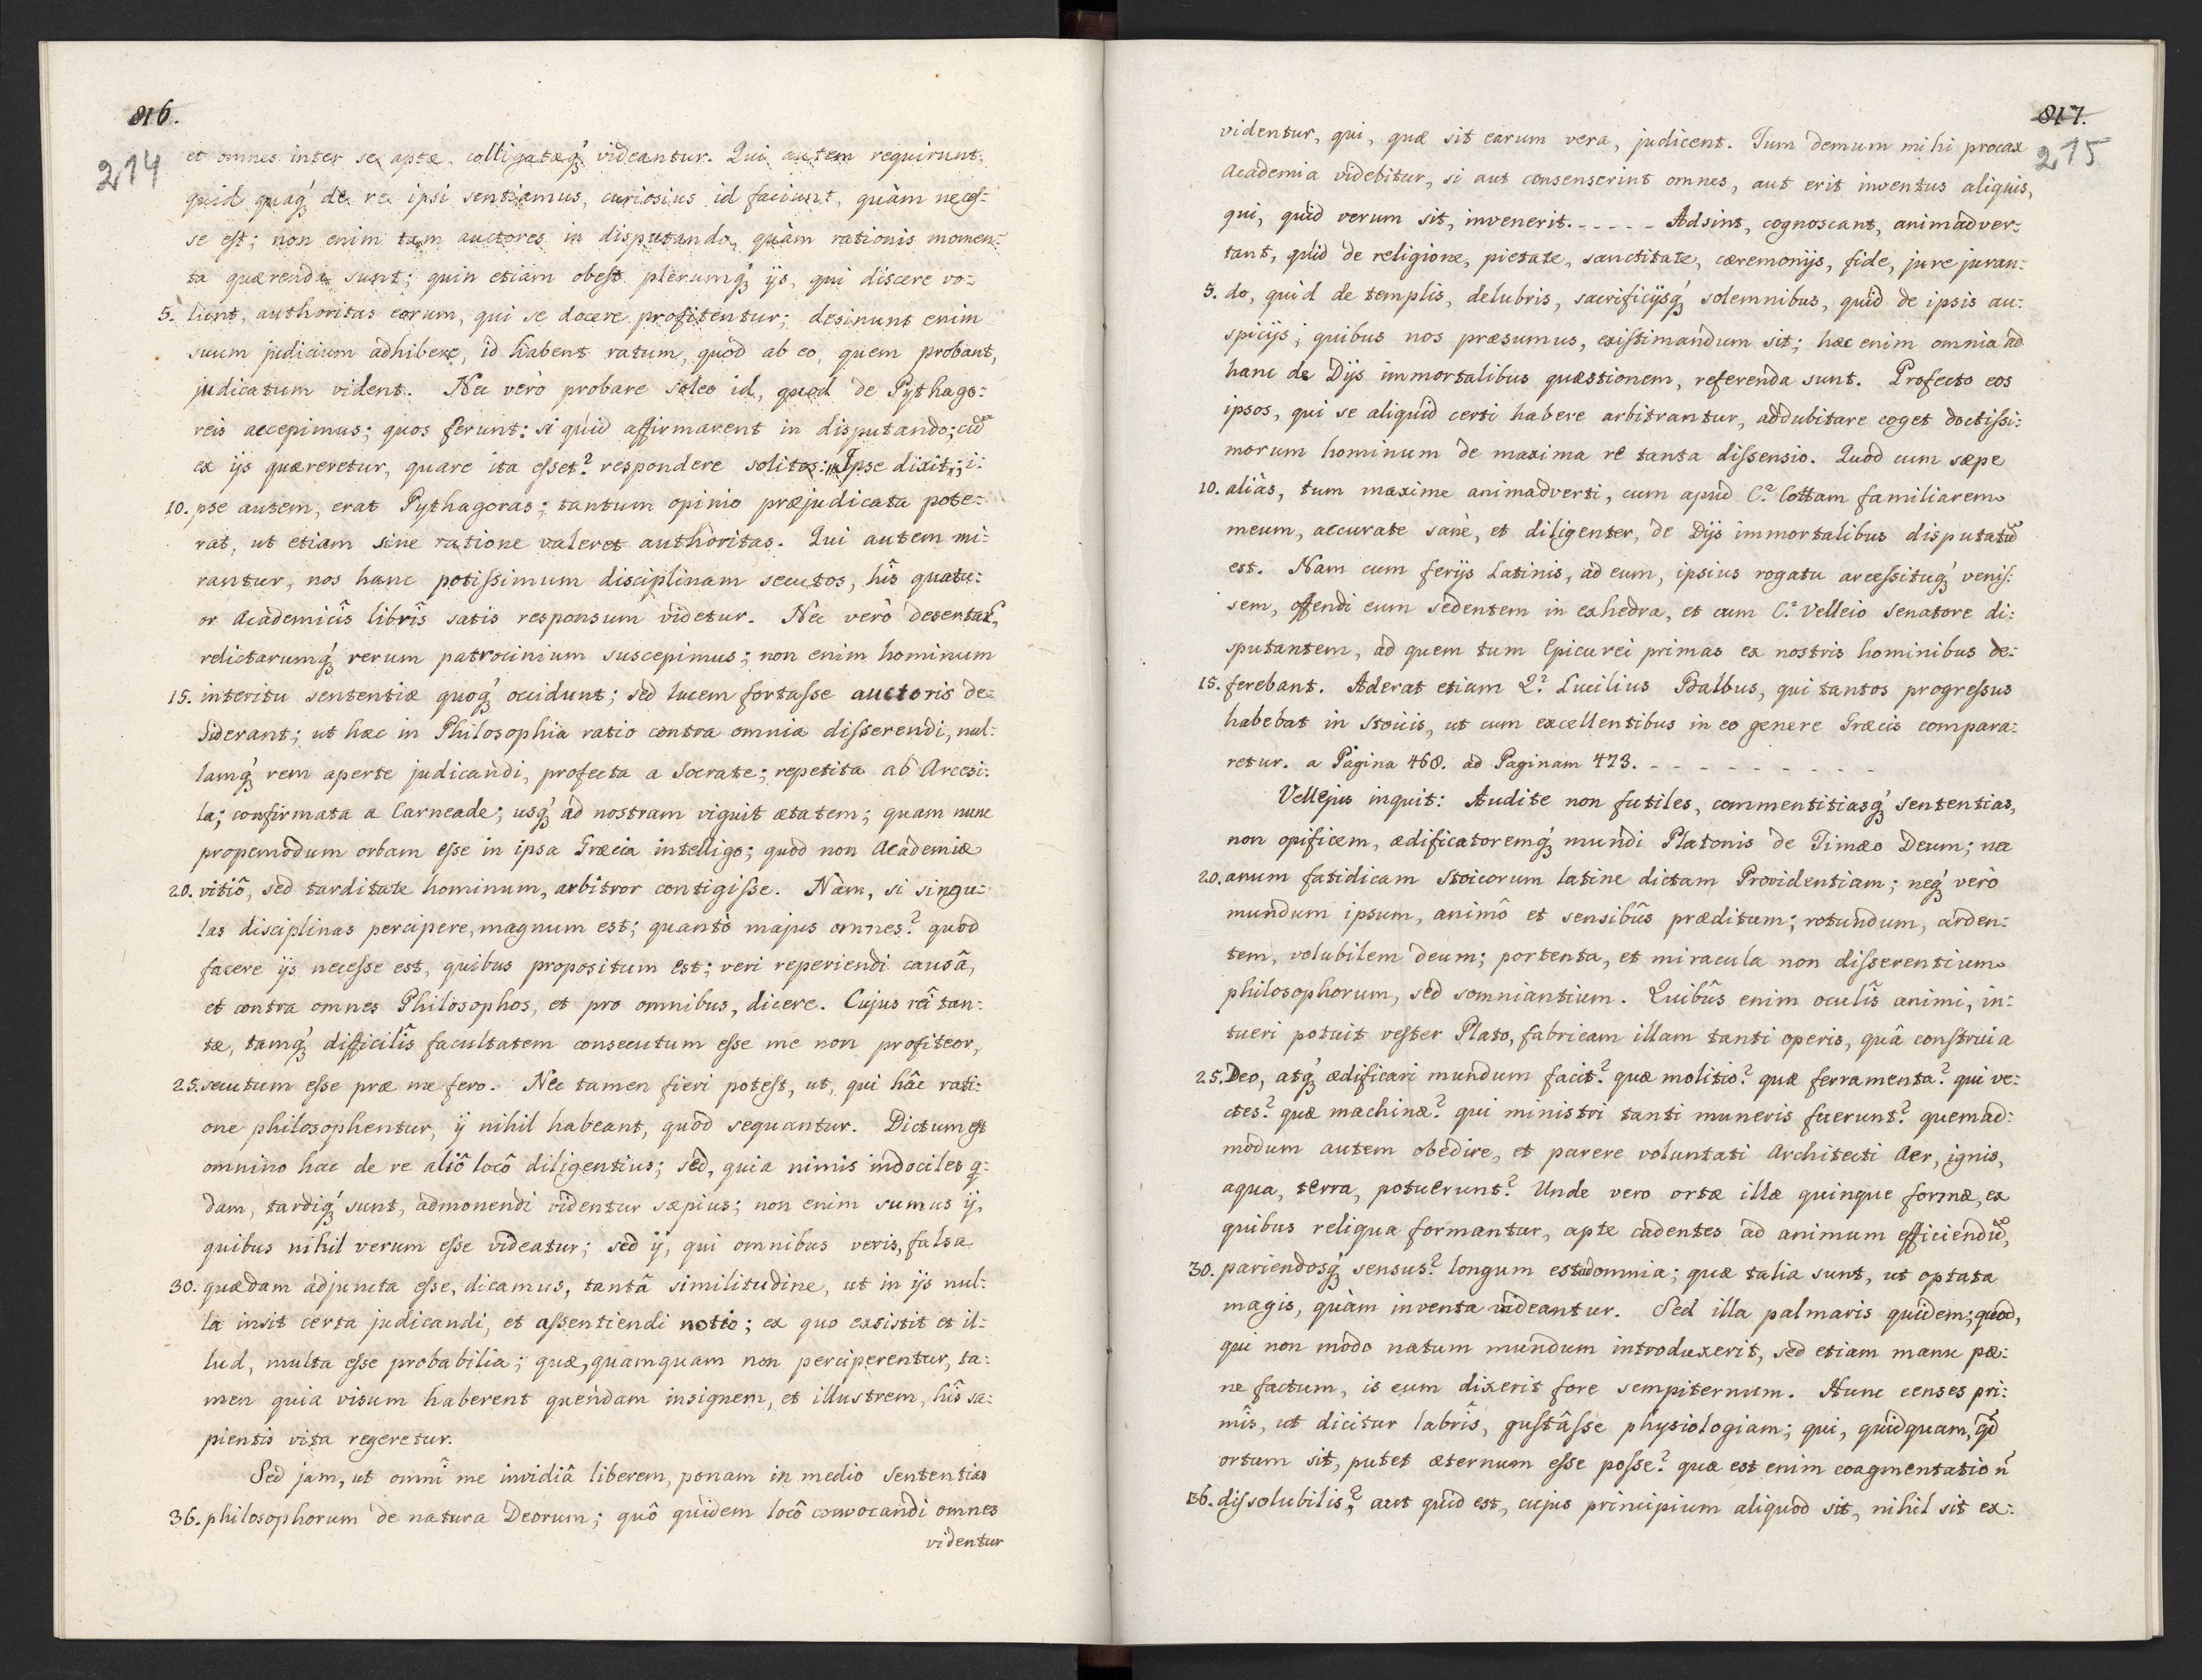 816.
214
et omnes inter se aptæ, colligatæq́ʒ videantur. Qui autem requirunt,
quid quaq́ʒ de re ipsi sentiamus, curiosius id faciunt, quàm neceſ-
se eſt; non enim tam auctores in disputando, quàm rationis momen:
ta quærenda sunt; quin etiam obeſt plerumq́ʒ ijs, qui discere vo-
5. lunt, authoritas eorum, qui se docere profitentur; desinunt enim
suum judicium adhibere, id habent ratum, quod ab eo, quem probant,
judicatum vident. Nec verò probare soleo id, quod de Pythago:
reis accepimus; quos ferunt: si quid affirmarent in disputando; cũ
ex ijs quæreretur, quare ita eſset? respondere solitos: „Ipse dixit„; i:
10. pse autem, erat Pythagoras; tantum opinio præjudicata pote:
rat, ut etiam sine ratione valeret authoritas. Qui autem mi:
rantur, nos hanc potiſsimum disciplinam secutos, hîs quatu:
or Academicîs librîs satis responsum videtur. Nec verò desertar̃,
relictarumq́ʒ rerum patrocinium suscepimus; non enim hominum
15. interitu sententiæ quoq́ʒ occidunt; sed lucem fortaſse auctoris de:
siderant; ut hæc in Philosophia ratio contra omnia diſserendi, nul:
lamq́ʒ rem aperte judicandi, profecta a Socrate; repetita ab Arcesi:
la; confirmata a Carneade; usq́ʒ ad nostram viguit ætatem; quam nunc
propemodum orbam eſse in ipsa Græcia intelligo; quod non Academiæ
20. vitiô, sed tarditate hominum, arbitror contigiſse. Nàm, si singu:
las disciplinas percipere, magnum est; quantò majus omnes? quod
facere ijs neceſse est, quibus propositum est; veri reperiendi causâ,
et contra omnes Philosophos, et pro omnibus, dicere. Cujus reî tan:
tæ, tamq́ʒ difficilîs facultatem consecutum eſse me non profiteor,
25. secutum eſse præ me fero. Nec tamen fieri poteſt, ut, qui hâc rati:
one philosophentur, ij nihil habeant, quod sequantur. Dictum eſt
omnino hac de re aliô locô diligentius; sed, quia nimis indociles q:
dam, tardiq́ʒ sunt, admonendi videntur sæpius; non enim sumus ij,
quibus nihil verum eſse videatur; sed ij, qui omnibus veris, falsa
30. quædam adjuncta eſse, dicamus, tantâ similitudine, ut in ijs nul:
la insit certa judicandi, et aſsentiendi notio; ex quo exsistit et il:
lud, multa eſse probabilia; quæ, quamquam non perciperentur, ta:
men quia visum haberent quendam insignem, et illustrem, hîs sa:
pientis vita regeretur.
Sed jam, ut omnî me invidiâ liberem, ponam in medio sententias
36. philosophorum de natura Deorum; quô quidem locô convocandi omnes
videntur
817.
215
videntur, qui, quæ sit earum vera, judicent. Tum demum mihi procax
Academia videbitur, si aut consenserint omnes, aut erit inventus aliquis,
qui, quid verum sit, invenerit. - - - - - Adsint, cognoscant, animadver:
tant, quid de religione, pietate, sanctitate, cæremonijs, fide, jure juran:
5. do, quid de templis, delubris, sacrificijsq́ʒ solemnibus, quid de ipsis au:
spicijs; quibus nos præsumus, exiſtimandum sit; hæc enim omnia ad
hanc de Dijs immortalibus quæstionem, referenda sunt. Profecto eos
ipsos, qui se aliquid certi habere arbitrantur, addubitare coget doctiſsi:
morum hominum de maxima re tanta diſsensio. Quod cum sæpe
10. aliàs, tum maxime animadverti, cum apud C. Cottam familiarem
meum, accurate sanè, et diligenter, de Dijs immortalibus disputatũ
est. Nam cum ferijs Latinis, ad eum, ipsius rogatu arceſsituq́ʒ veniſ:
sem, offendi eum sedentem in exhedra, et cum C. Velleio Senatore di:
sputantem, ad quem tum Epicurei primas ex nostris hominibus de:
15. ferebant. Aderat etiam Q. Lucilius Balbus, qui tantos progreſsus
habebat in Stoicis, ut cum excellentibus in eo genere Græcis compara:
retur. a Pagina 468. ad Paginam 473. - - - - - - - - - -
Vellejus inquit: Audite non futiles, commentitiasq́ʒ sententias,
non opificem, ædificatoremq́ʒ mundi Platonis de Timæo Deum; nec
20. anum fatidicam Stoicorum latine dictam Providentiam; neq́ʒ verò
mundum ipsum, animô et sensibûs præditum; rotundum, arden:
tem, volubilem deum; portenta, et miracula non diſserentium
philosophorum, sed somniantium. Quibûs enim oculîs animi, in:
tueri potuit veſter Plato, fabricam illam tanti operis, quâ conſtrui a
25. Deo, atq́ʒ ædificari mundum facit? quæ molitio? quæ ferramenta? qui ve:
ctes? quæ machinæ? qui ministri tanti muneris fuerunt? quemad:
modum autem obedire, et parere voluntati Architecti Aer, ignis,
aqua, terra, potuerunt? Unde vero ortæ illæ quinque formæ, ex
quibus reliqua formantur, apte cadentes ad animum efficiendũ,
30. pariendosq́ʒ sensus? longum est ad omnia; quæ talia sunt, ut optata
magis, quàm inventa videantur. Sed illa palmaris quidem; quod,
qui non modo natum mundum introduxerit, sed etiam manu pæ:
ne factum, is eum dixerit fore sempiternum. Hunc censes pri:
mîs, ut dicitur labrîs, guſtâſse physiologiam; qui, quidquam, qd̃
ortum sit, putet æternum eſse poſse? quæ est enim coagmentatio ñ
36. diſsolubilis? aut quid est, cujus principium aliquod sit, nihil sit ex: